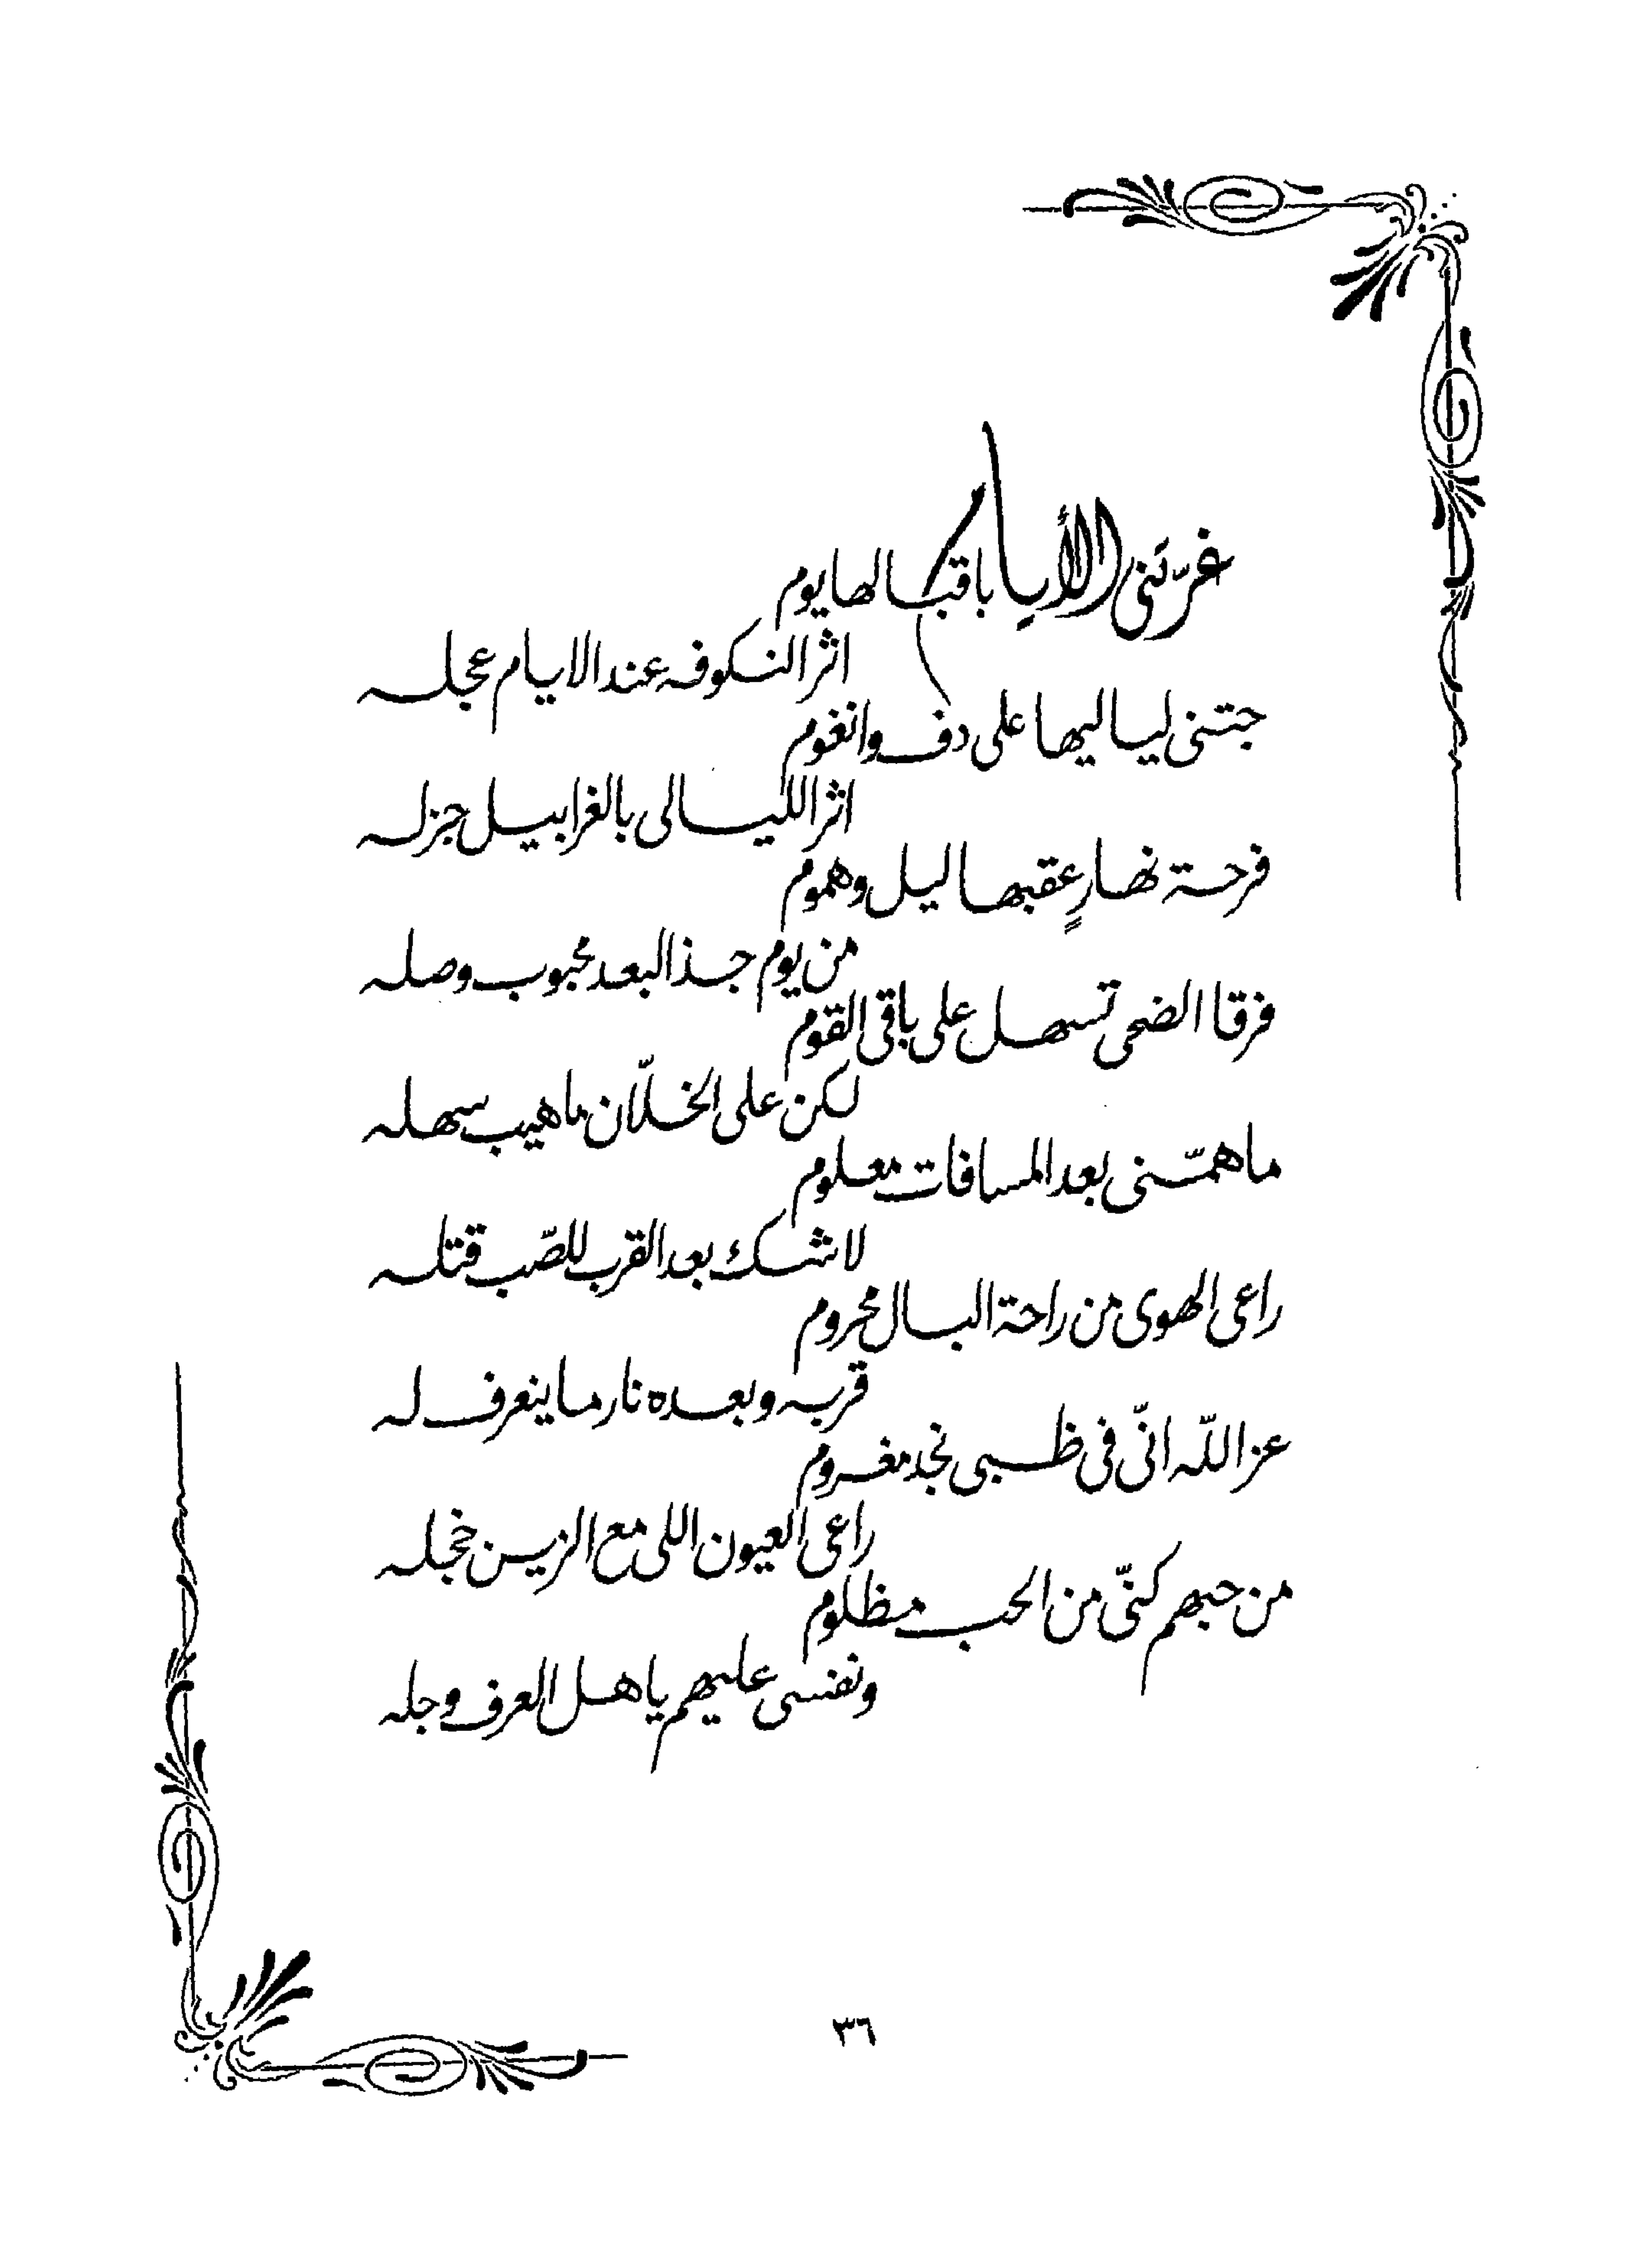 غرّتني الأيام باقبالها يوم
اثر النكوفه عند الايام عجله
جتني لياليها على دف وانغوم
اثر الليالى بالغرابيل جزله
فرحة نهارٍ عقبها ليل وهموم
من يوم جذ البعد محبوب وصله
فرقا الضحى تسهل على باقى القوم
لكن على الخلّان ماهيب سهله
ماهمّنى بعد المسافات معلوم
لاشك بعد القرب للصّب قتله
راعى الهوى من راحة البال محروم
قربه وبعده نار ماينعرف له
عز اللّه انّى فى ظبى نجد مغروم
راعى العيون اللى مع الزين خجله
من حبهم كنّى من الحب مظلوم
ونفسى عليهم ياهل العرف وجله
٣٦